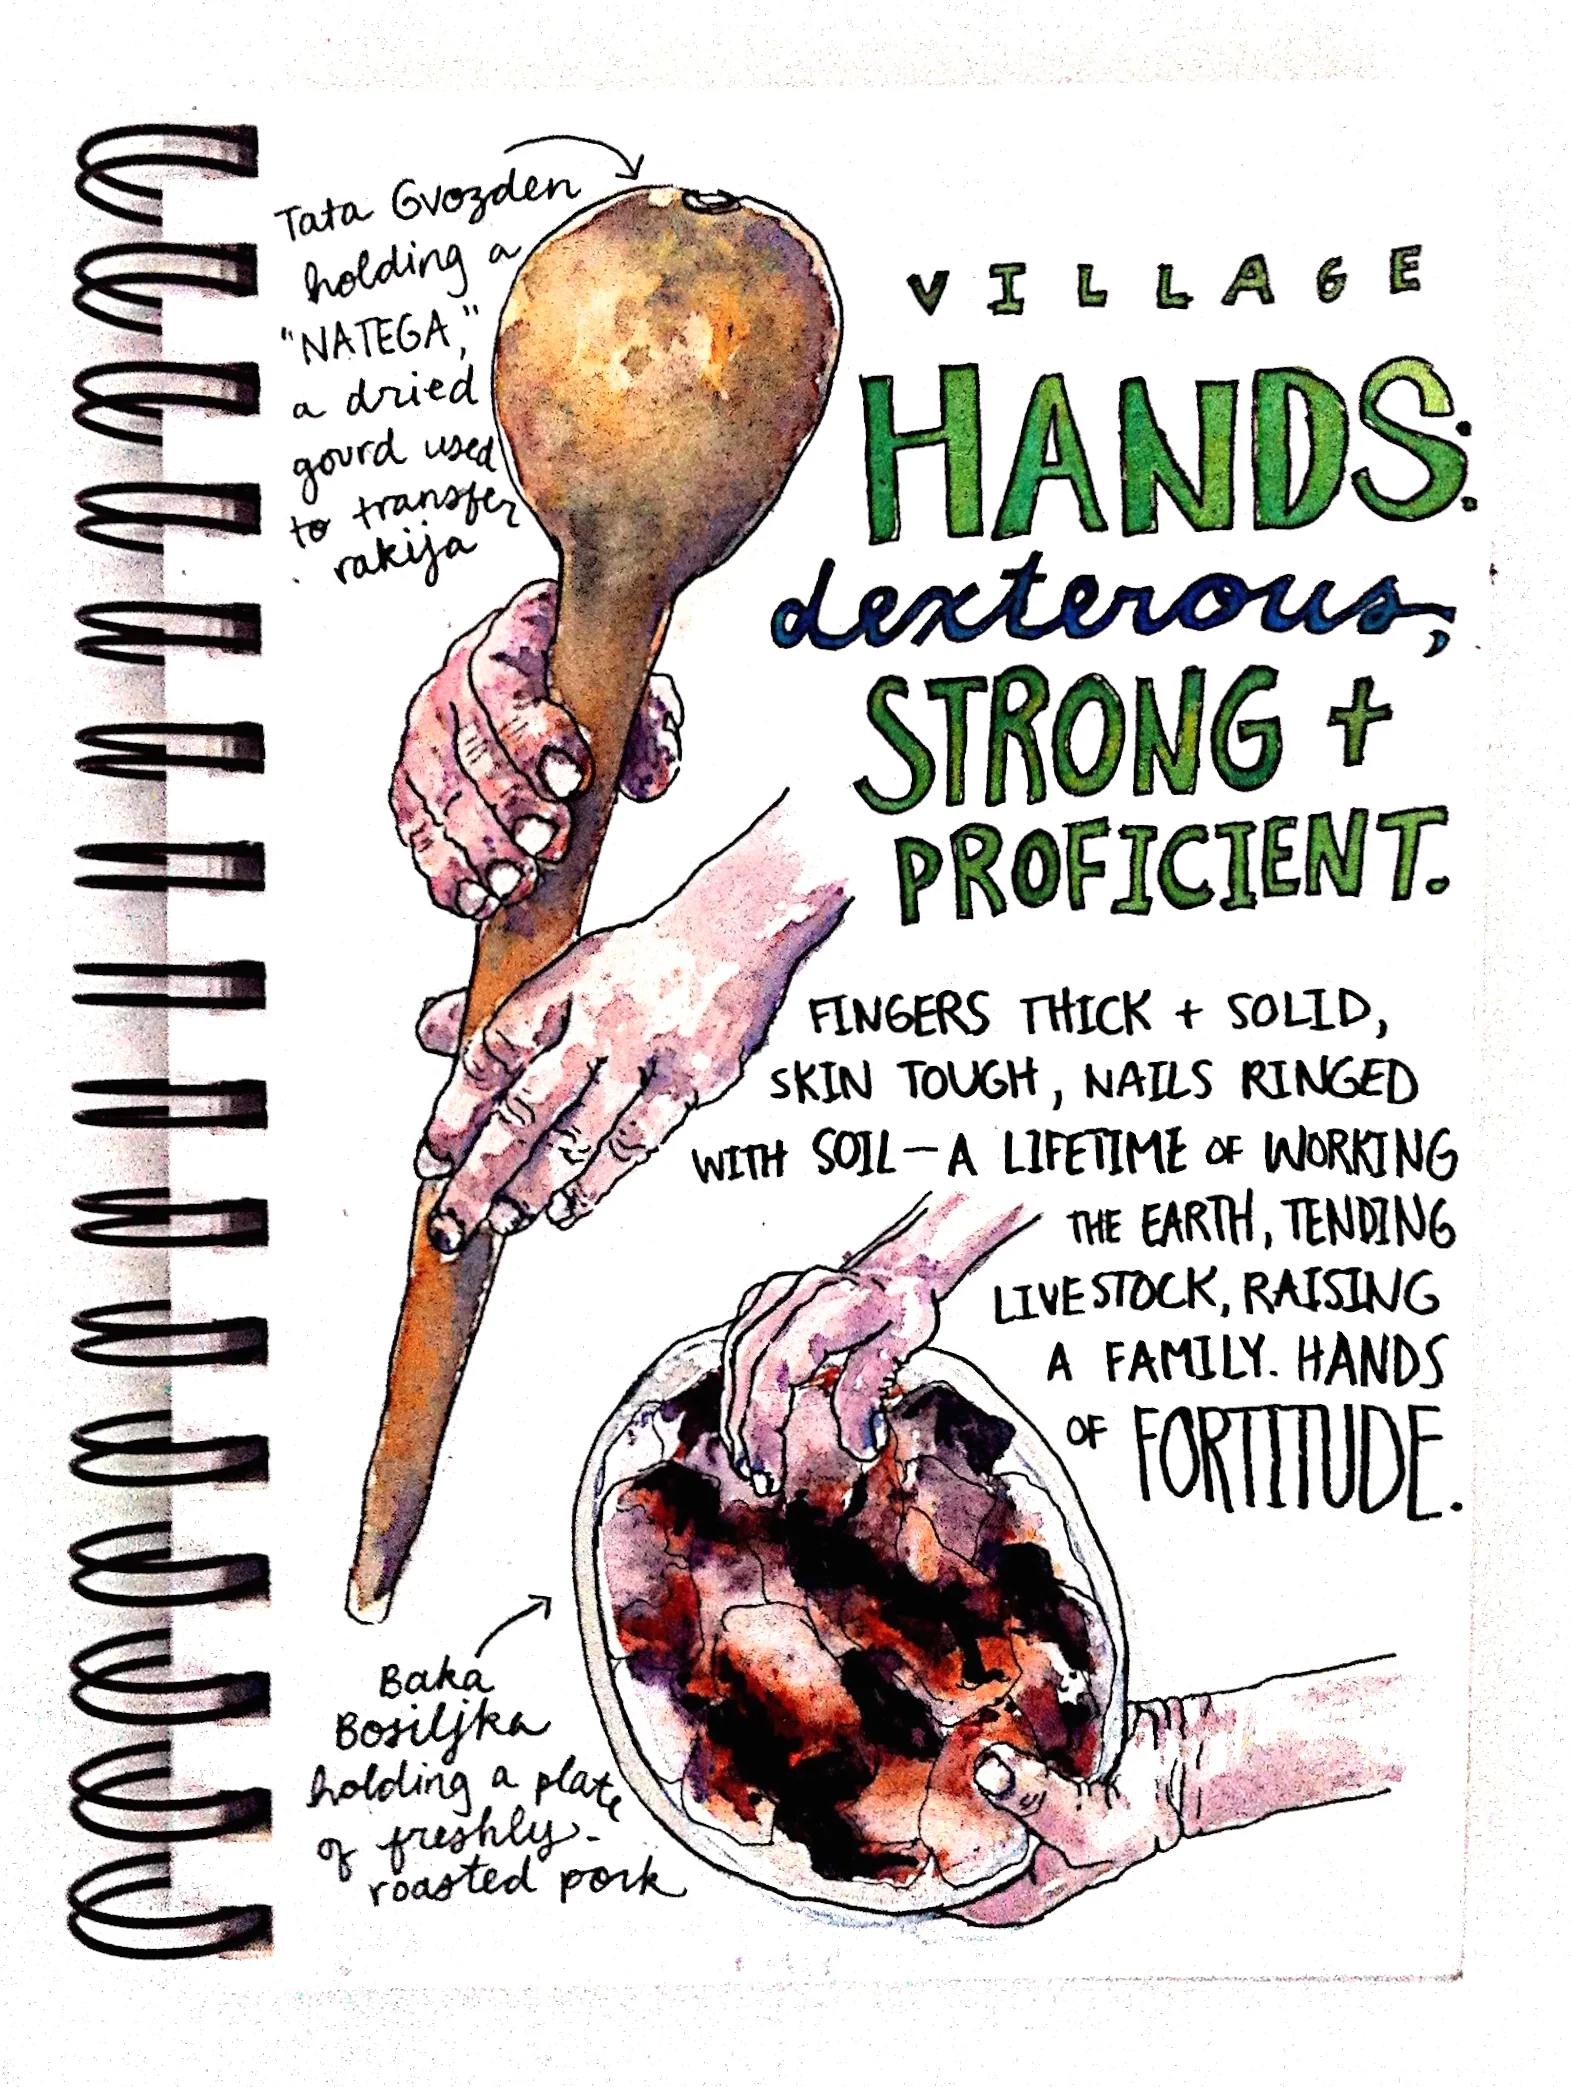 Tata Gvozden
holding a
"NATEGA,"
a dried
gourd used
to transfer
rakija
VILLAGE
HANDS:
dexterous,
STRONG +
PROFICIENT.
FINGERS THICK + SOLID,
SKIN TOUGH, NAILS RINGED
WITH SOIL—A LIFETIME OF WORKING
THE EARTH, TENDING
LIVESTOCK, RAISING
A FAMILY. HANDS
OF FORTITUDE.
Baka
Bosiljka
holding a plate
of freshly-
roasted pork